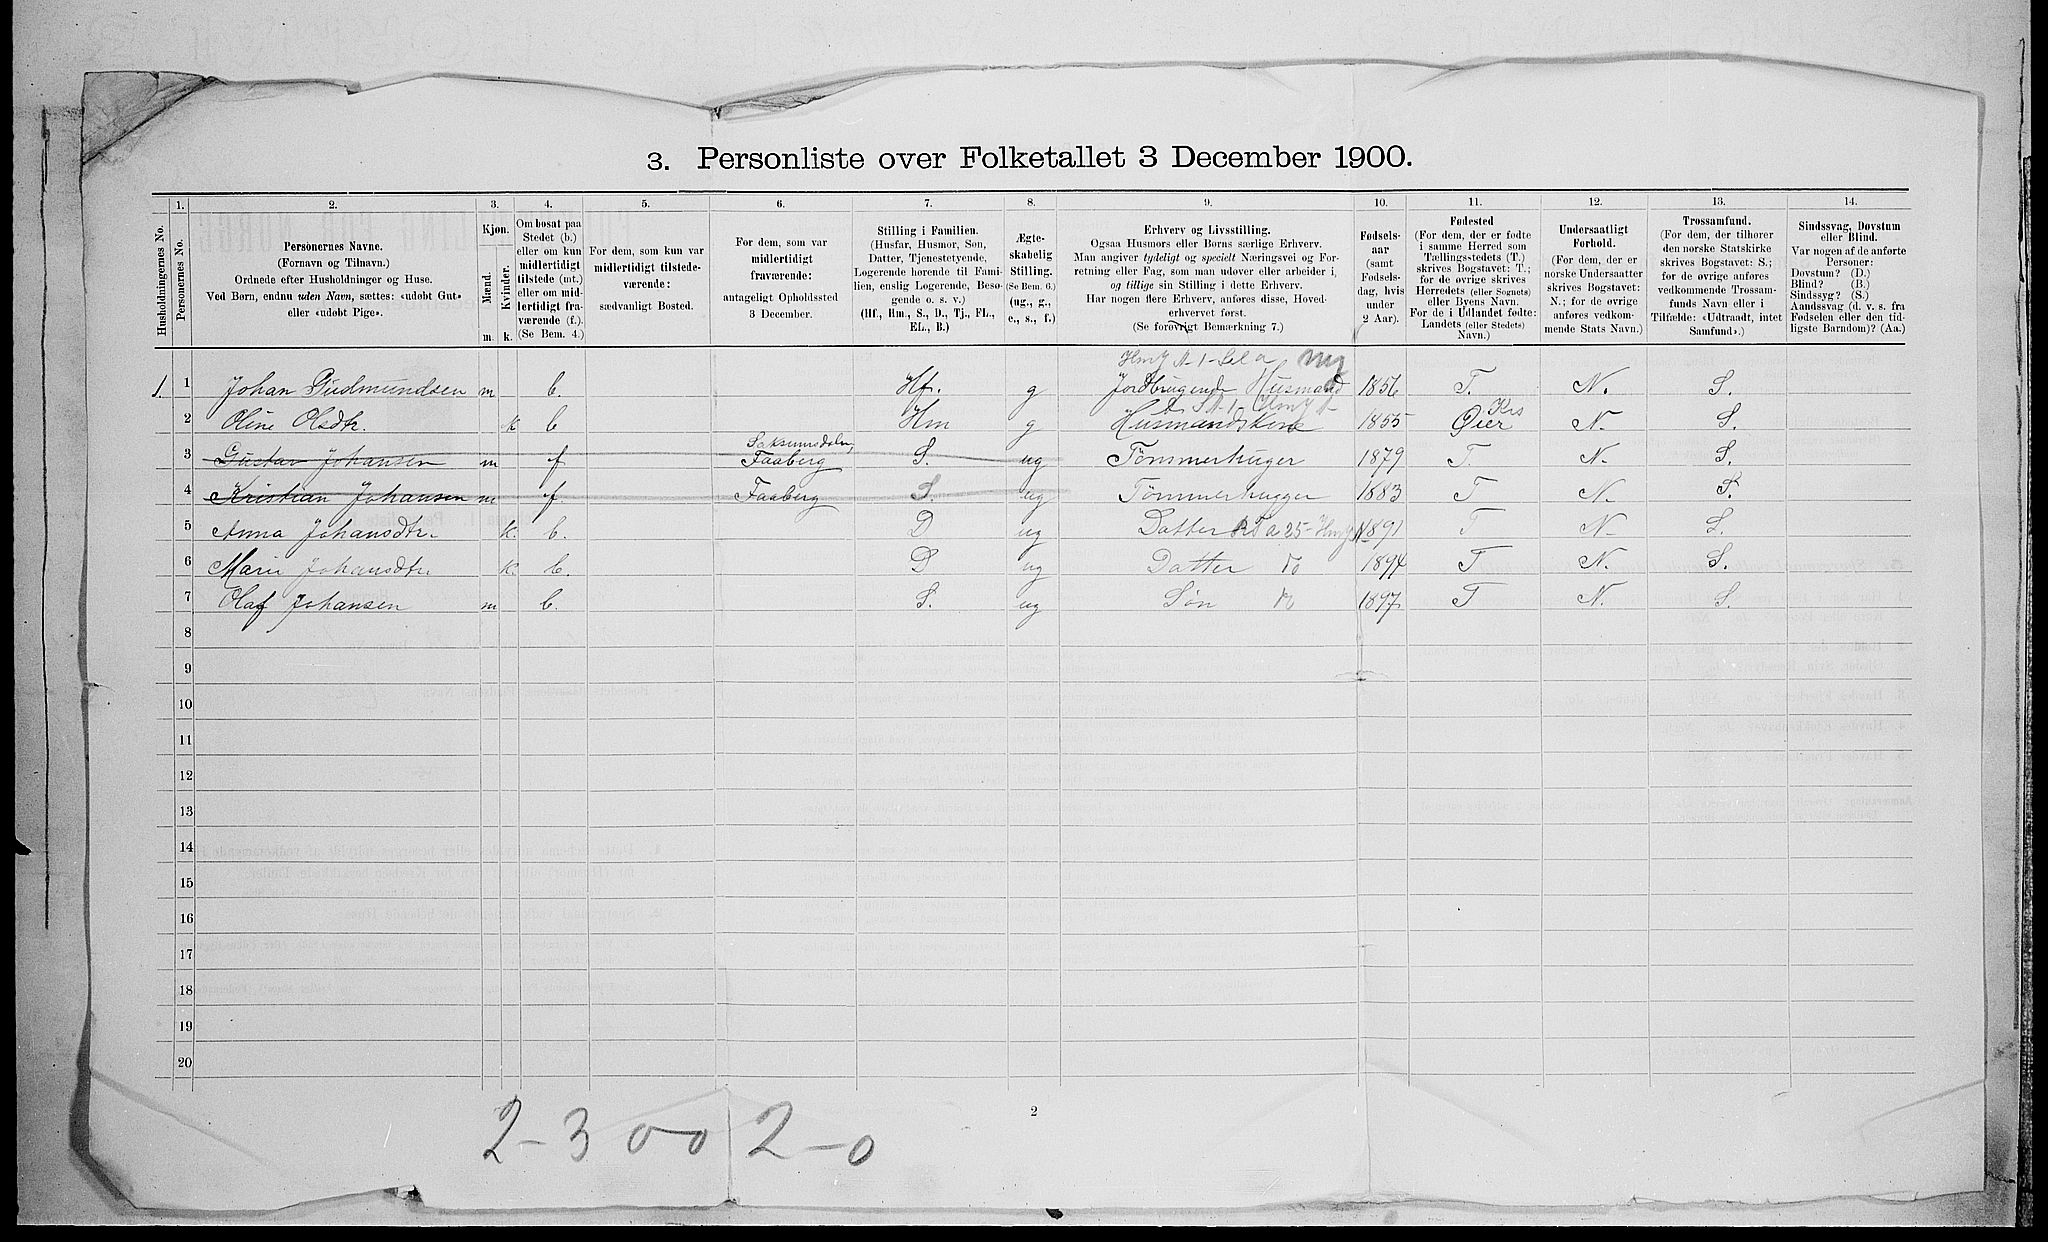 3. Personliste over Folketallet 3 December 1900.
1. 2. 3. 4. 5. 6. 7. 8. 9. 10. 11. 12. 13. 14.
Husholdningernes No.
Personernes No.
Personernes Navne.
(Fornavn og Tilnavn.)
Ordnede efter Husholdninger og Huse.
Ved Børn, endnu uden Navn, sættes: «udøbt Gut»
eller «udøbt Pige».
Kjøn.
Mænd.
Kvinder.
m. k.
Om bosat paa
Stedet (b.)
eller om kun
midlertidigt
tilstede (mt.)
eller om mid-
lertidigt fra-
værende (f.).
(Se Bem. 4.)
For dem, som kun var
midlertidigt tilstede-
værende:
sædvanligt Bosted.
For dem, som var
midlertidigt
fraværende:
antageligt Opholdssted
3 December.
Stilling i Familien.
(Husfar, Husmor, Søn,
Datter, Tjenestetyende,
Logerende hørende til Fami-
lien, enslig Logerende, Besø-
gende o. s. v.)
(Hf., Hm., S., D., Tj., FL.,
EL., B.)
Ægte-
skabelig
Stilling.
(Se Bem. 6.)
(ug., g.,
e., s., f.)
Erhverv og Livsstilling.
Ogsaa Husmors eller Børns særlige Erhverv.
Man angiver tydeligt og specielt Næringsvei og For-
retning eller Fag, som man udøver eller arbeider i,
og tillige sin Stilling i dette Erhverv.
Har nogen flere Erhverv, anføres disse, Hoved-
erhvervet først.
(Se forøvrigt Bemærkning 7.)
Fødsels-
aar
(samt
Fødsels-
dag, hvis
under
2 Aar).
Fødested
(For dem, der er fødte
i samme Herred som
Tællingsstedets (T.)
skrives Bogstavet: T.;
for de øvrige skrives
Herredets (eller Sognets)
eller Byens Navn.
For de i Udlandet fødte:
Landets (eller Stedets)
Navn.)
Undersaatligt
Forhold.
(For dem, der er
norske Undersaatter
skrives Bogstavet:
N.; for de øvrige
anføres vedkom-
mende Stats Navn.)
Trossamfund.
(For dem, der tilhører
den norske Statskirke
skrives Bogstavet: S.;
for de øvrige anføres
vedkommende Trossam-
funds Navn eller i
Tilfælde: «Udtraadt, intet
Samfund».)
Sindssvag, Døvstum
eller Blind.
Var nogen af de anførte
Personer:
Døvstum? (D.)
Blind? (B.)
Sindssyg? (S.)
Aandssvag (d. v. s. fra
Fødselen eller den tid-
ligste Barndom)? (Aa.)
1. 1 Johan Gudmundsen m b. Hf. g Jordbrugende Husmand 1856 T. N. S.
Krs
2 Oline Olsdtr. k b Hm g Husmandskone 1855 Øier N. S.
Saksumsdalen,
3 Gustav Johansen m f Faaberg S. ug Tømmerhuger 1879 T. N. S.
4 Kristian Johansen m f. Faaberg S. ug Tømmerhugger 1883 T N. S.
5 Anna Johansdtr. k. b. D ug Datter 1891 T N. S.
6 Marie Johansdtr. k. b. D ug Datter do 1894 T N. S.
7 Olaf Johansen m b. S. ug Søn do 1897 T N. S.
8
9
10
11
12
13
14
15
16
17
18
19
20
2
2-3 00 2-0